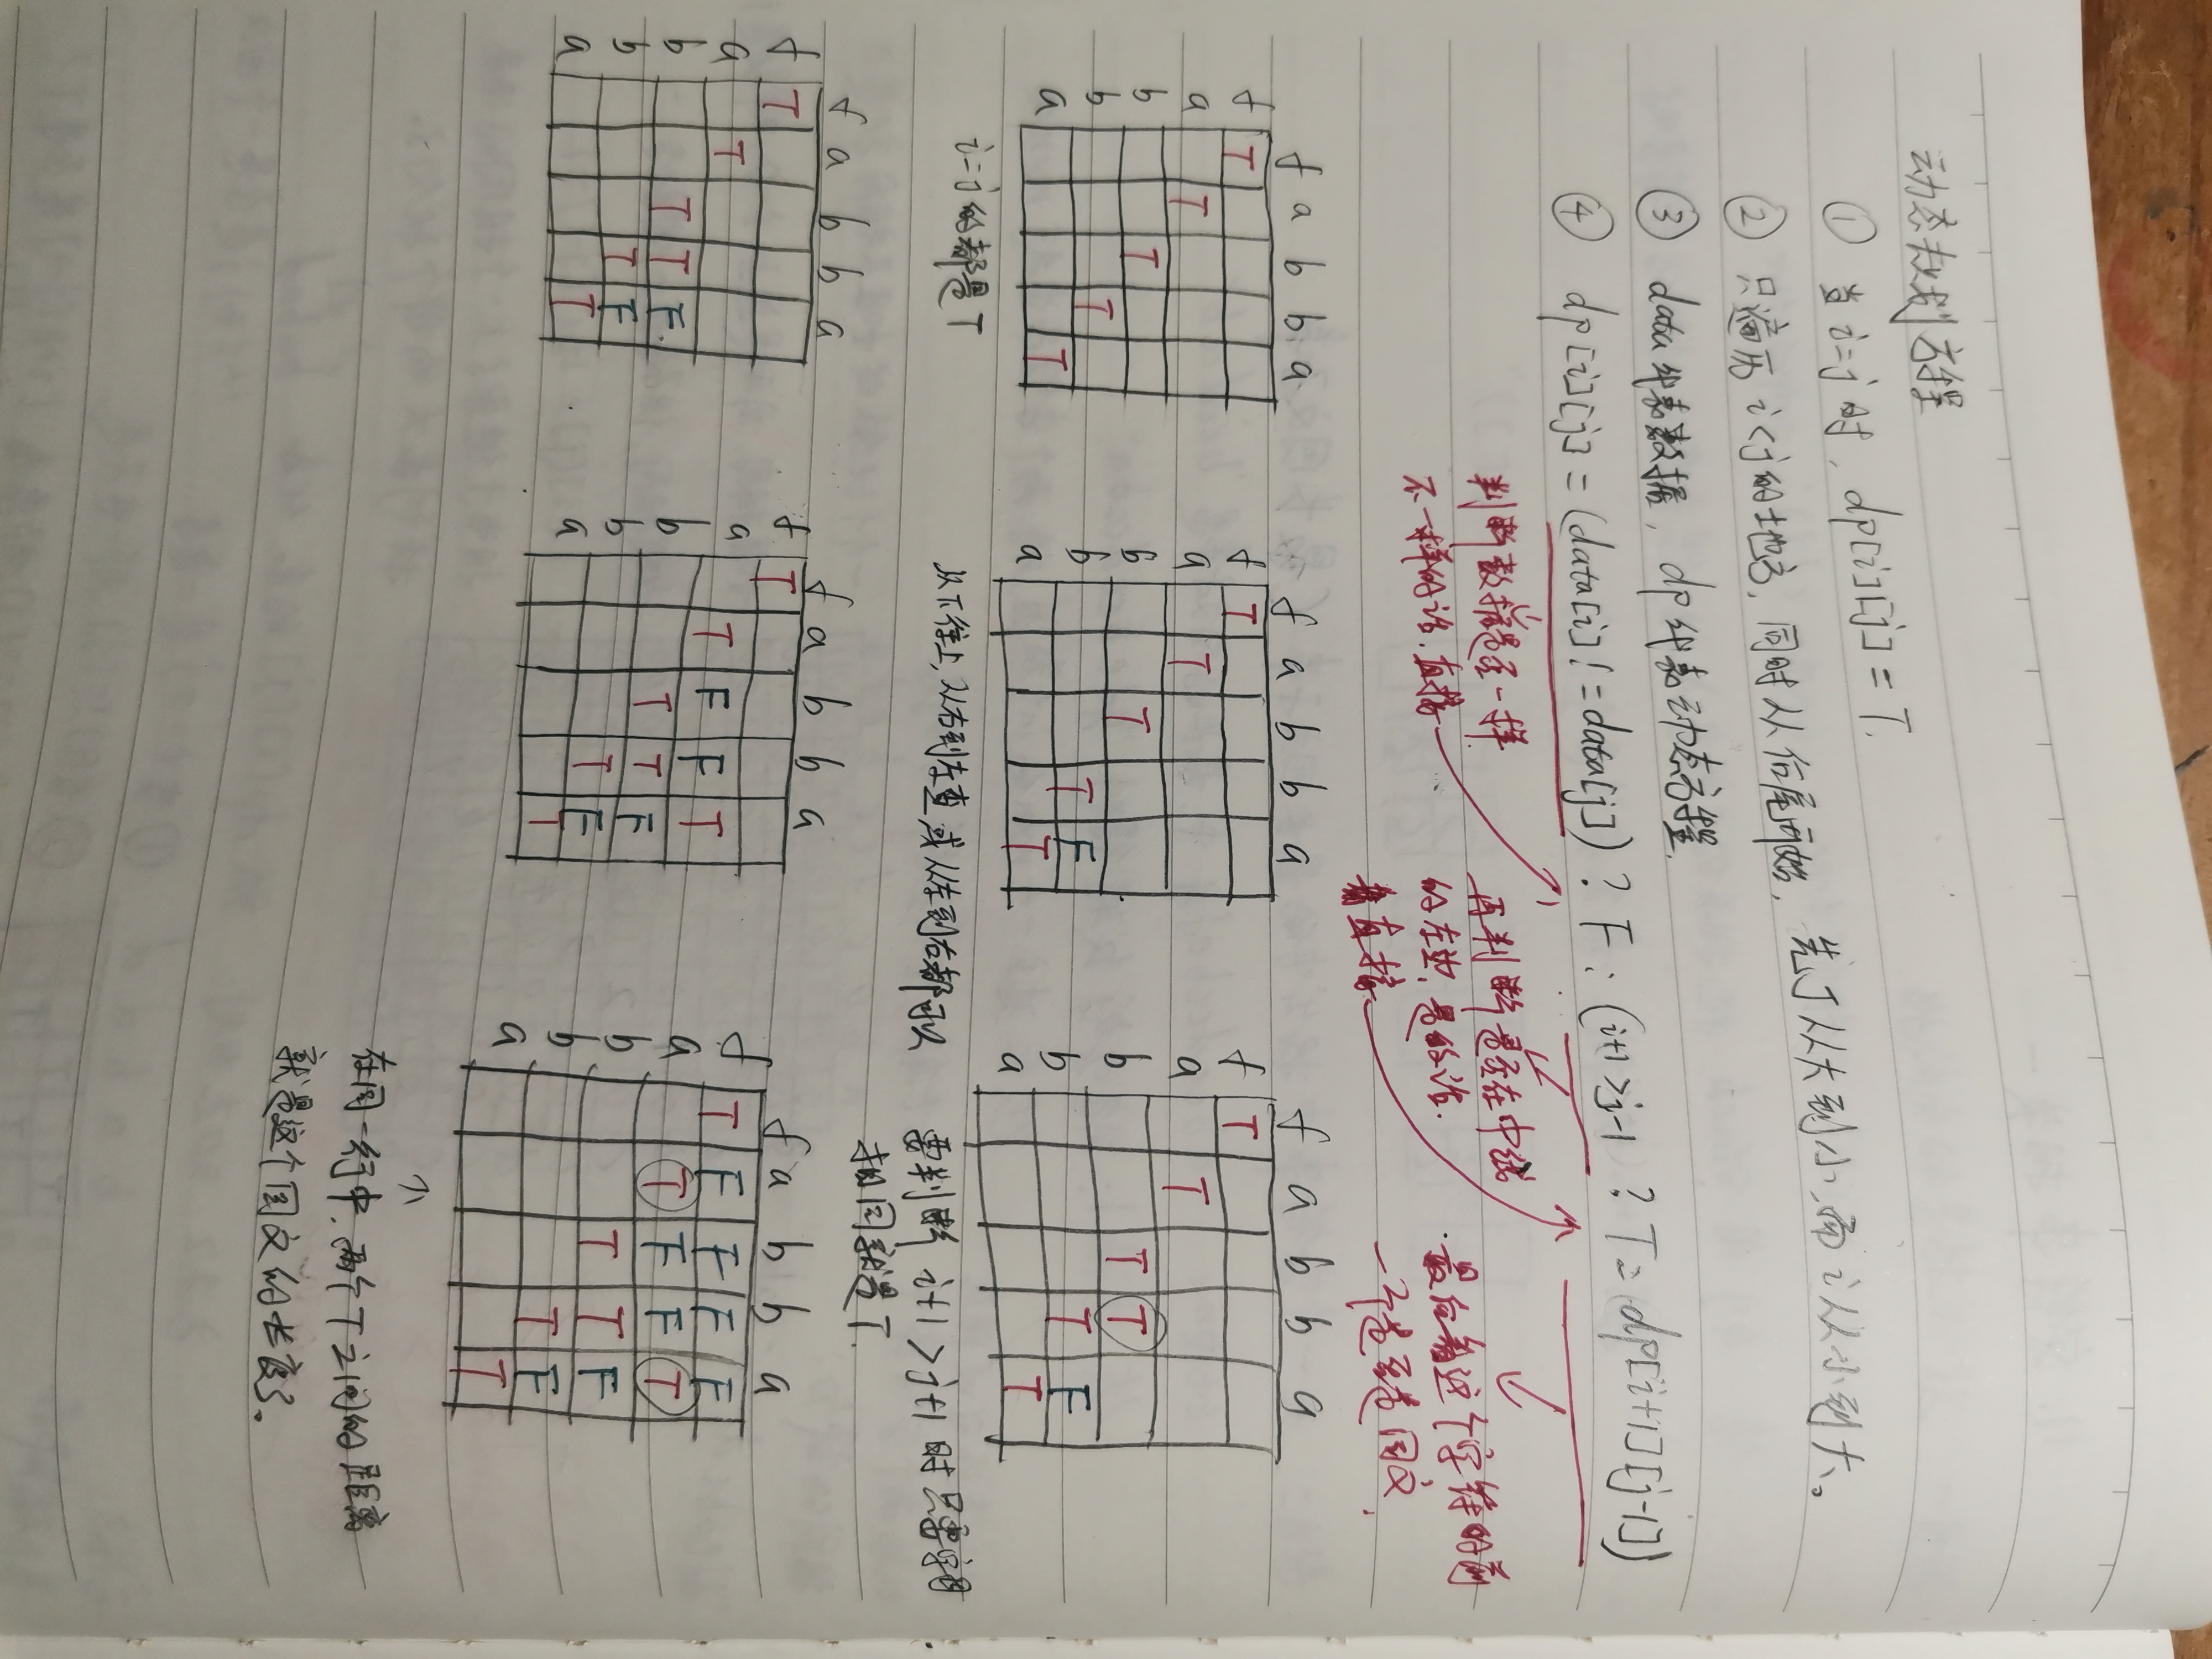 动态规划方程
① 当i=j时, dp[i][j]=T.
② 只遍历 i<j的地方, 同时从后尾开始, 先J从大到小,而i从小到大。
③ data代表数据, dp代表动态方程.
④ dp[i][j]=(data[i]!=data[j])?F:(i+1>j-1?T=dp[i+1][j-1])
判断数据是否一样
不一样的话.直接
再判断是否在中线
的左边,是的话.
直接
最后看这个字符的前
一个是否是回文,
f a b b a
f T
a T
b T
b T
a T
i=j的都是T
f a b b a
f T
a T
b T
b T F
a T
从下往上,从右到左查或从左到右都可以
f a b b a
f T
a T
b T T
b T F
a T
要判断 i+1>j+1时只要字母
相同就是T.
f a b b a
f T
a T
b T T F
b T F
a T
f a b b a
f T
a T F F T
b T T F
b T F
a T
f a b b a
f T F F F F
a T F F T
b T T F
b T F
a T
在同一行中,两个T之间的距离
就是这个回文的长度了。